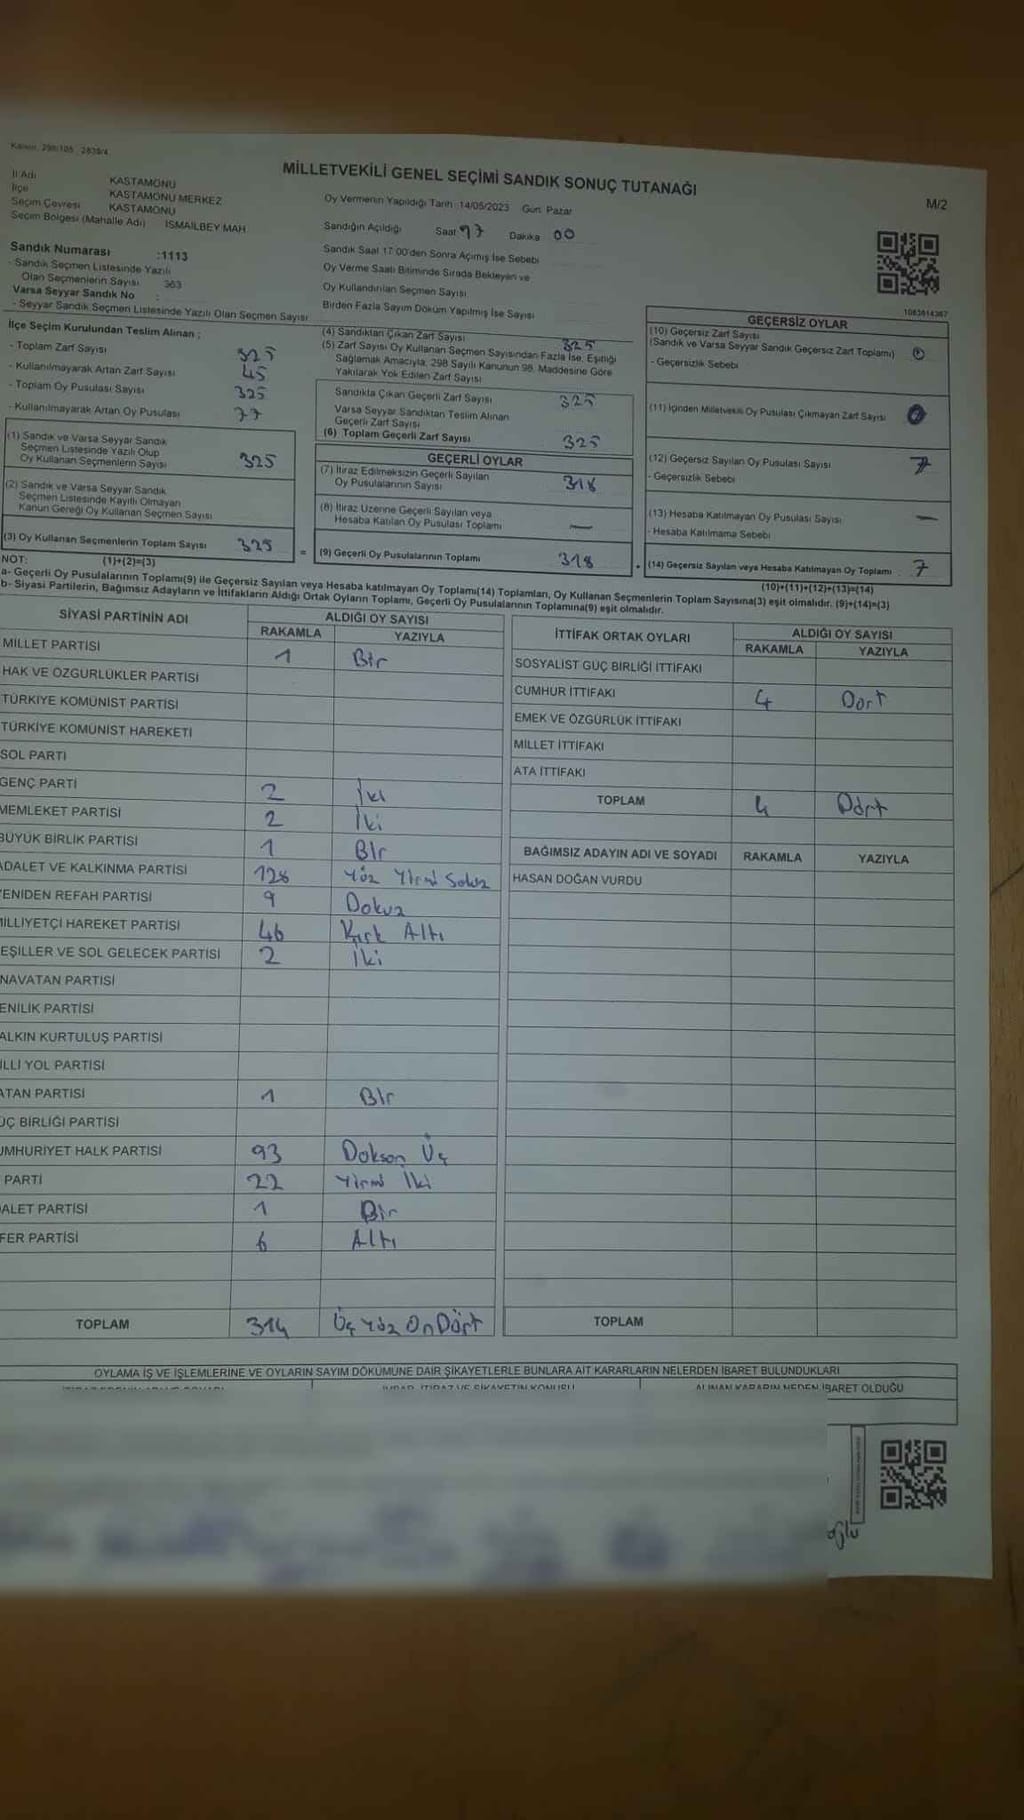 Kanun: 298/105 , 2839/4
MİLLETVEKİLİ GENEL SEÇİMİ SANDIK SONUÇ TUTANAĞI
M/2
İl Adı KASTAMONU
İlçe KASTAMONU MERKEZ
Seçim Çevresi KASTAMONU
Seçim Bölgesi (Mahalle Adı) İSMAİLBEY MAH.
Sandık Numarası :1113
- Sandık Seçmen Listesinde Yazılı
Olan Seçmenlerin Sayısı 363
Varsa Seyyar Sandık No :
- Seyyar Sandık Seçmen Listesinde Yazılı Olan Seçmen Sayısı
Oy Vermenin Yapıldığı Tarih :14/05/2023 Gün: Pazar
Sandığın Açıldığı Saat 17 Dakika 00
Sandık Saat 17:00'den Sonra Açımış İse Sebebi
Oy Verme Saati Bitiminde Sırada Bekleyen ve
Oy Kullandırılan Seçmen Sayısı
Birden Fazla Sayım Döküm Yapılmış İse Sayısı
1083614367
İlçe Seçim Kurulundan Teslim Alınan ;
- Toplam Zarf Sayısı 325
- Kullanılmayarak Artan Zarf Sayısı 45
- Toplam Oy Pusulası Sayısı 325
- Kullanılmayarak Artan Oy Pusulası 77
(1) Sandık ve Varsa Seyyar Sandık
Seçmen Listesinde Yazılı Olup
Oy Kullanan Seçmenlerin Sayısı 325
(2) Sandık ve Varsa Seyyar Sandık
Seçmen Listesinde Kayıtlı Olmayan
Kanun Gereği Oy Kullanan Seçmen Sayısı
(3) Oy Kullanan Seçmenlerin Toplam Sayısı 325
(1)+(2)=(3)
(4) Sandıktan Çıkan Zarf Sayısı 325
(5) Zarf Sayısı Oy Kullanan Seçmen Sayısından Fazla İse, Eşitliği
Sağlamak Amacıyla, 298 Sayılı Kanunun 98. Maddesine Göre
Yakılarak Yok Edilen Zarf Sayısı
Sandıkta Çıkan Geçerli Zarf Sayısı 325
Varsa Seyyar Sandıktan Teslim Alınan
Geçerli Zarf Sayısı
(6) Toplam Geçerli Zarf Sayısı 325
GEÇERLİ OYLAR
(7) İtiraz Edilmeksizin Geçerli Sayılan
Oy Pusulalarının Sayısı 318
(8) İtiraz Üzerine Geçerli Sayılan veya
Hesaba Katılan Oy Pusulası Toplamı —
= (9) Geçerli Oy Pusulalarının Toplamı 318
GEÇERSİZ OYLAR
(10) Geçersiz Zarf Sayısı
(Sandık ve Varsa Seyyar Sandık Geçersiz Zarf Toplamı)
- Geçersizlik Sebebi
(11) İçinden Milletvekili Oy Pusulası Çıkmayan Zarf Sayısı
(12) Geçersiz Sayılan Oy Pusulası Sayısı 7
- Geçersizlik Sebebi
(13) Hesaba Katılmayan Oy Pusulası Sayısı —
- Hesaba Katılmama Sebebi
(14) Geçersiz Sayılan veya Hesaba Katılmayan Oy Toplamı 7
(10)+(11)+(12)+(13)=(14)
NOT:
a- Geçerli Oy Pusulalarının Toplamı(9) ile Geçersiz Sayılan veya Hesaba katılmayan Oy Toplamı(14) Toplamları, Oy Kullanan Seçmenlerin Toplam Sayısına(3) eşit olmalıdır. (9)+(14)=(3)
b- Siyasi Partilerin, Bağımsız Adayların ve İttifakların Aldığı Ortak Oyların Toplamı, Geçerli Oy Pusulalarının Toplamına(9) eşit olmalıdır.
SİYASİ PARTİNİN ADI ALDIĞI OY SAYISI
RAKAMLA YAZIYLA
MİLLET PARTİSİ 1 Bir
HAK VE ÖZGÜRLÜKLER PARTİSİ
TÜRKİYE KOMÜNİST PARTİSİ
TÜRKİYE KOMÜNİST HAREKETİ
SOL PARTİ
GENÇ PARTİ 2 İki
MEMLEKET PARTİSİ 2 İki
BÜYÜK BİRLİK PARTİSİ 1 Bir
ADALET VE KALKINMA PARTİSİ 128 Yüz Yirmi Sekiz
YENİDEN REFAH PARTİSİ 9 Dokuz
MİLLİYETÇİ HAREKET PARTİSİ 46 Kırk Altı
EŞİLLER VE SOL GELECEK PARTİSİ 2 İki
NAVATAN PARTİSİ
ENİLİK PARTİSİ
ALKIN KURTULUŞ PARTİSİ
İLLİ YOL PARTİSİ
ATAN PARTİSİ 1 Bir
ÜÇ BİRLİĞİ PARTİSİ
UMHURİYET HALK PARTİSİ 93 Doksan Üç
PARTİ 22 Yirmi İki
ALET PARTİSİ 1 Bir
FER PARTİSİ 6 Altı
TOPLAM 314 Üç Yüz On Dört
İTTİFAK ORTAK OYLARI ALDIĞI OY SAYISI
RAKAMLA YAZIYLA
SOSYALİST GÜÇ BİRLİĞİ İTTİFAKI
CUMHUR İTTİFAKI 4 Dört
EMEK VE ÖZGÜRLÜK İTTİFAKI
MİLLET İTTİFAKI
ATA İTTİFAKI
TOPLAM 4 Dört
BAĞIMSIZ ADAYIN ADI VE SOYADI RAKAMLA YAZIYLA
HASAN DOĞAN VURDU
TOPLAM
OYLAMA İŞ VE İŞLEMLERİNE VE OYLARIN SAYIM DÖKÜMÜNE DAİR ŞİKAYETLERLE BUNLARA AİT KARARLARIN NELERDEN İBARET BULUNDUKLARI
ALINAN KARARIN NEDEN İBARET OLDUĞU
oğlu